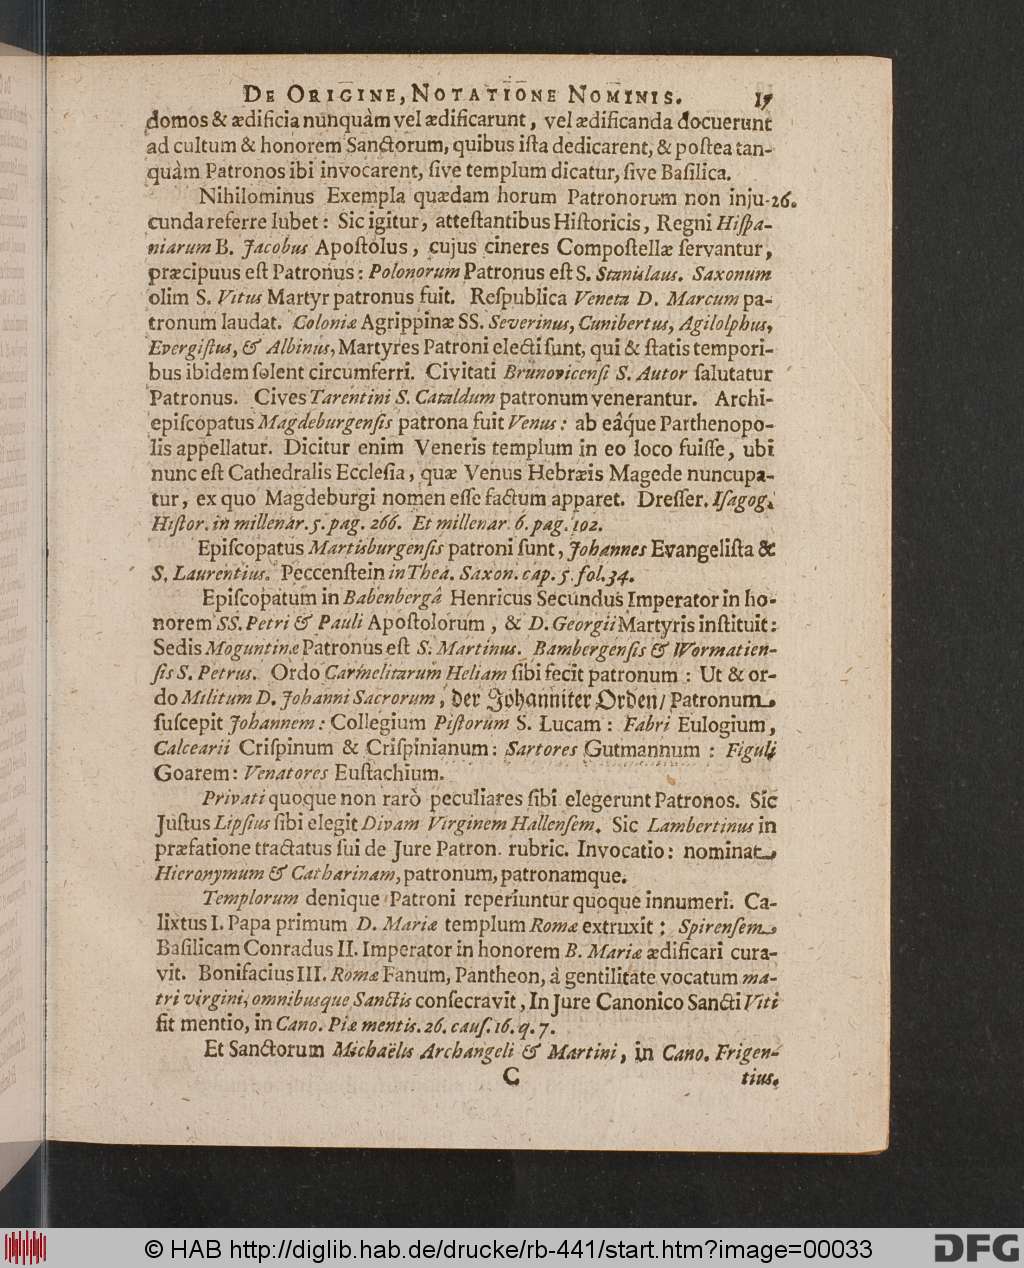 DE ORIGINE, NOTATIONE NOMINIS. 17
domos & ædificia nunquàm vel ædificarunt, vel ædificanda docuerunt
ad cultum & honorem Sanctorum, quibus iſta dedicarent, & poſtea tan-
quàm Patronos ibi invocarent, ſive templum dicatur, ſive Baſilica.
Nihilominus Exempla quædam horum Patronorum non inju- 26.
cunda referre lubet: Sic igitur, atteſtantibus Hiſtoricis, Regni Hiſpa-
niarum B. Jacobus Apoſtolus, cujus cineres Compoſtellæ ſervantur,
præcipuus eſt Patronus: Polonorum Patronus eſt S. Stanislaus. Saxonum
olim S. Vitus Martyr patronus fuit. Reſpublica Veneta D. Marcum pa-
tronum laudat. Coloniæ Agrippinæ SS. Severinus, Cunibertus, Agilolphus,
Evergiſtus, & Albinus, Martyres Patroni electi ſunt, qui & ſtatis tempori-
bus ibidem ſolent circumferri. Civitati Brunovicenſi S. Autor ſalutatur
Patronus. Cives Tarentini S. Cataldum patronum venerantur. Archi-
epiſcopatus Magdeburgenſis patrona fuit Venus: ab eâq́ue Parthenopo-
lis appellatur. Dicitur enim Veneris templum in eo loco fuiſſe, ubi
nunc eſt Cathedralis Eccleſia, quæ Venus Hebræis Magede nuncupa-
tur, ex quo Magdeburgi nomen eſſe factum apparet. Dreſſer. Iſagog.
Hiſtor. in millenar. 5. pag. 266. Et millenar. 6. pag. 102.
Epiſcopatus Martisburgenſis patroni ſunt, Johannes Evangeliſta &
S. Laurentius. Peccenſtein in Thea. Saxon. cap. 5. fol. 34.
Epiſcopatum in Babenbergâ Henricus Secundus Imperator in ho-
norem SS. Petri & Pauli Apoſtolorum, & D. Georgii Martyris inſtituit:
Sedis Moguntinæ Patronus eſt S. Martinus. Bambergenſis & Wormatien-
ſis S. Petrus. Ordo Carmelitarum Heliam ſibi fecit patronum: Ut & or-
do Militum D. Johanni Sacrorum, der Johanniter Orden/ Patronum
ſuſcepit Johannem: Collegium Piſtorum S. Lucam: Fabri Eulogium,
Calcearii Criſpinum & Criſpinianum: Sartores Gutmannum: Figuli
Goarem: Venatores Euſtachium.
Privati quoque non rarò peculiares ſibi elegerunt Patronos. Sic
Juſtus Lipſius ſibi elegit Divam Virginem Hallenſem. Sic Lambertinus in
præfatione tractatus ſui de Jure Patron. rubric. Invocatio: nominat
Hieronymum & Catharinam, patronum, patronamque.
Templorum denique Patroni reperiuntur quoque innumeri. Ca-
lixtus I. Papa primum D. Mariæ templum Romæ extruxit: Spirenſem
Baſilicam Conradus II. Imperator in honorem B. Mariæ ædificari cura-
vit. Bonifacius III. Romæ Fanum, Pantheon, à gentilitate vocatum ma-
tri virgini, omnibusque Sanctis conſecravit, In Jure Canonico Sancti Viti
fit mentio, in Cano. Piæ mentis. 26. cauſ. 16. q. 7.
Et Sanctorum Michaëlis Archangeli & Martini, in Cano. Frigen-
C tius.
© HAB http://diglib.hab.de/drucke/rb-441/start.htm?image=00033
DFG